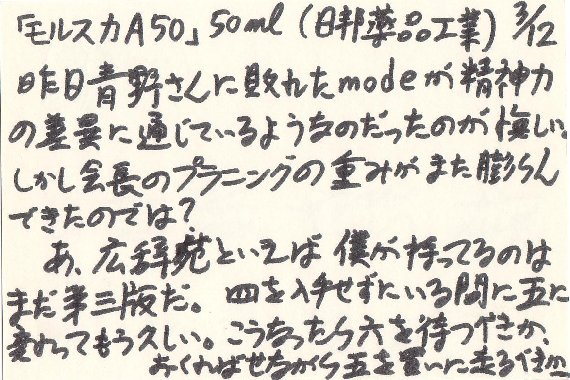 「モルスカA50」50ml（日邦薬品工業）3/12
昨日青野さんに敗れたmodeが精神力
の差異に通じているようなのだったのが悔しい。
しかし会長のプラニングの重みがまた膨らん
できたのでは？
あ、広辞苑といえば僕が持ってるのは
まだ第三版だ。四を入手せずにいる間に五に
変わってもう久しい。こうなったら六を待つべきか、
おくればせながら五を買いに走るべきか